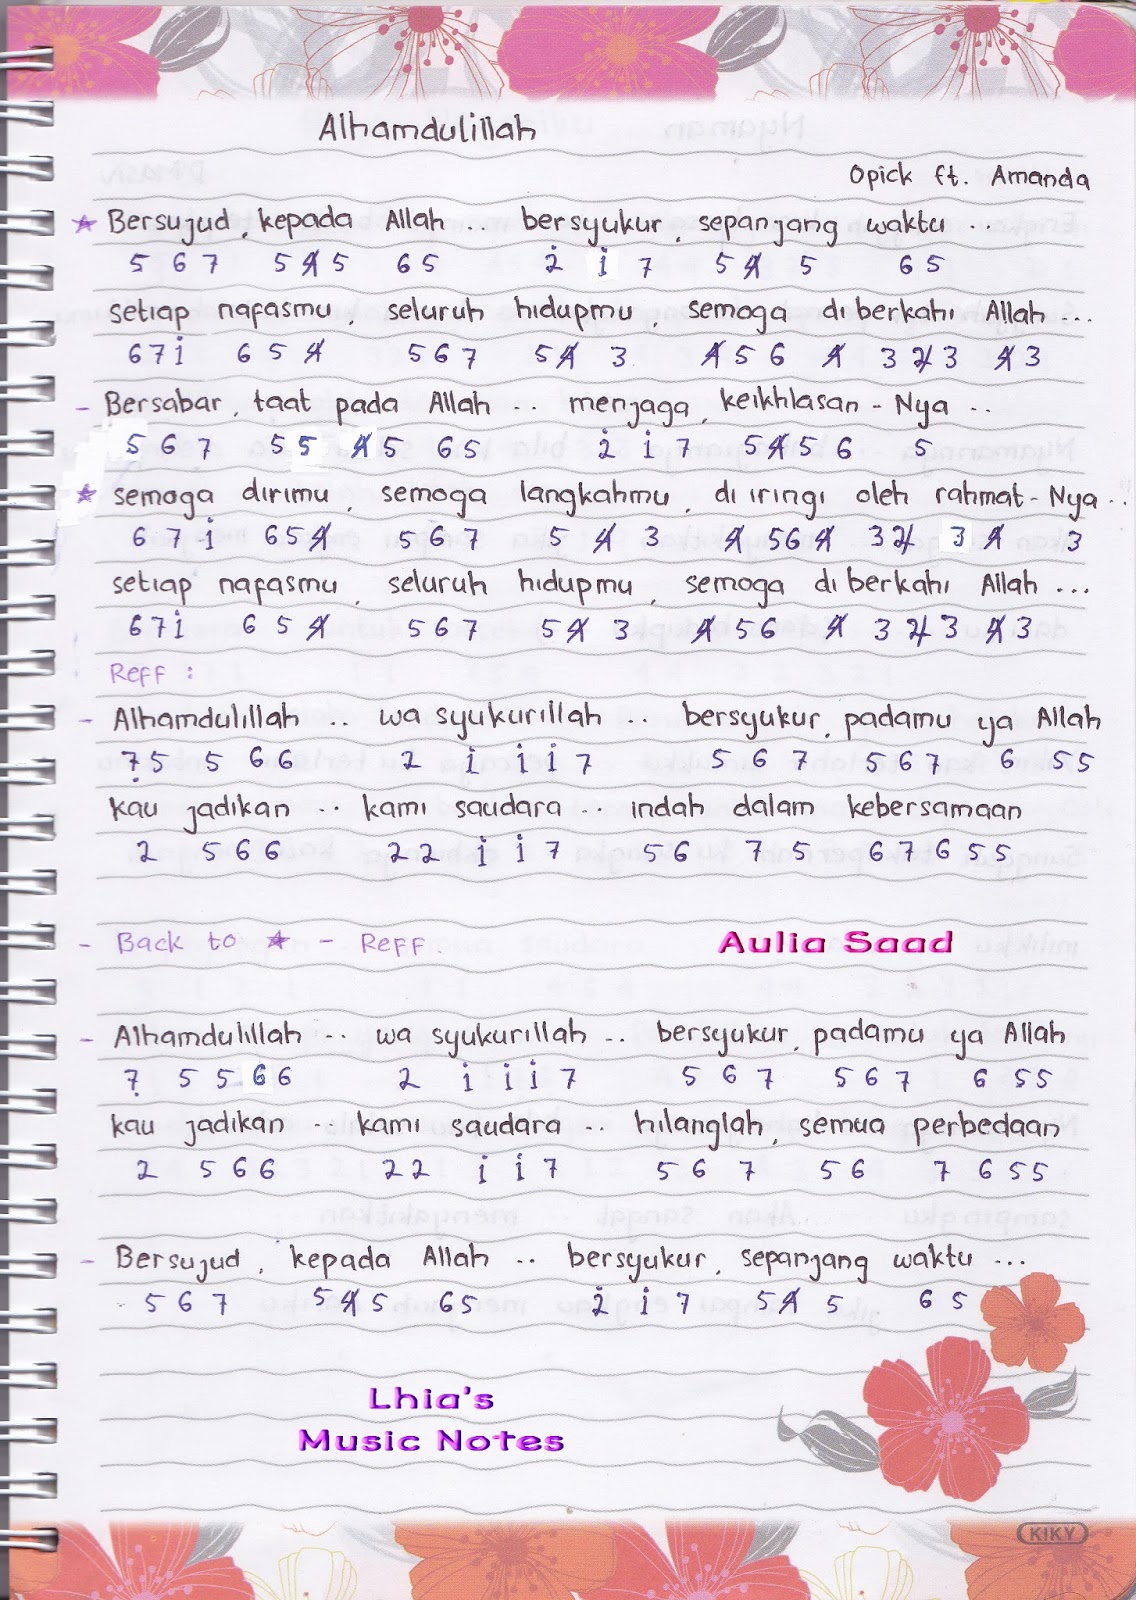 Alhamdulillah
Opick ft. Amanda
★ Bersujud, kepada Allah .. bersyukur, sepanjang waktu ...
5 6 7 5 4̸ 5 6 5 2̇ 1̇ 7 5 4̸ 5 6 5
setiap nafasmu, seluruh hidupmu, semoga diberkahi Allah ...
6 7 1̇ 6 5 4̸ 5 6 7 5 4̸ 3 4̸ 5 6 4̸ 3 2̸ 3 4̸ 3
- Bersabar, taat pada Allah .. menjaga, keikhlasan - Nya ..
5 6 7 5 5 4̸ 5 6 5 2̇ 1̇ 7 5 4̸ 5 6 5
★ semoga dirimu, semoga langkahmu, diiringi oleh rahmat - Nya ..
6 7 1̇ 6 5 4̸ 5 6 7 5 4̸ 3 4̸ 5 6 4̸ 3 2̸ 3 4̸ 3
setiap nafasmu, seluruh hidupmu, semoga diberkahi Allah ...
6 7 1̇ 6 5 4̸ 5 6 7 5 4̸ 3 4̸ 5 6 4̸ 3 2̸ 3 4̸ 3
Reff :
- Alhamdulillah .. wa syukurillah .. bersyukur, padamu ya Allah
7̣ 5 5 6 6 2 1̇ 1̇ 1̇ 7 5 6 7 5 6 7 6 5 5
kau jadikan .. kami saudara .. indah dalam kebersamaan
2 5 6 6 2 2 1̇ 1̇ 7 5 6 7 5 6 7 6 5 5
- Back to ★ - Reff.
Aulia Saad
- Alhamdulillah .. wa syukurillah .. bersyukur, padamu ya Allah
7̣ 5 5 6 6 2 1̇ 1̇ 1̇ 7 5 6 7 5 6 7 6 5 5
kau jadikan .. kami saudara .. hilanglah, semua perbedaan
2 5 6 6 2 2 1̇ 1̇ 7 5 6 7 5 6 7 6 5 5
- Bersujud, kepada Allah .. bersyukur, sepanjang waktu ...
5 6 7 5 4̸ 5 6 5 2̇ 1̇ 7 5 4̸ 5 6 5
Lhia's
Music Notes
KIKY